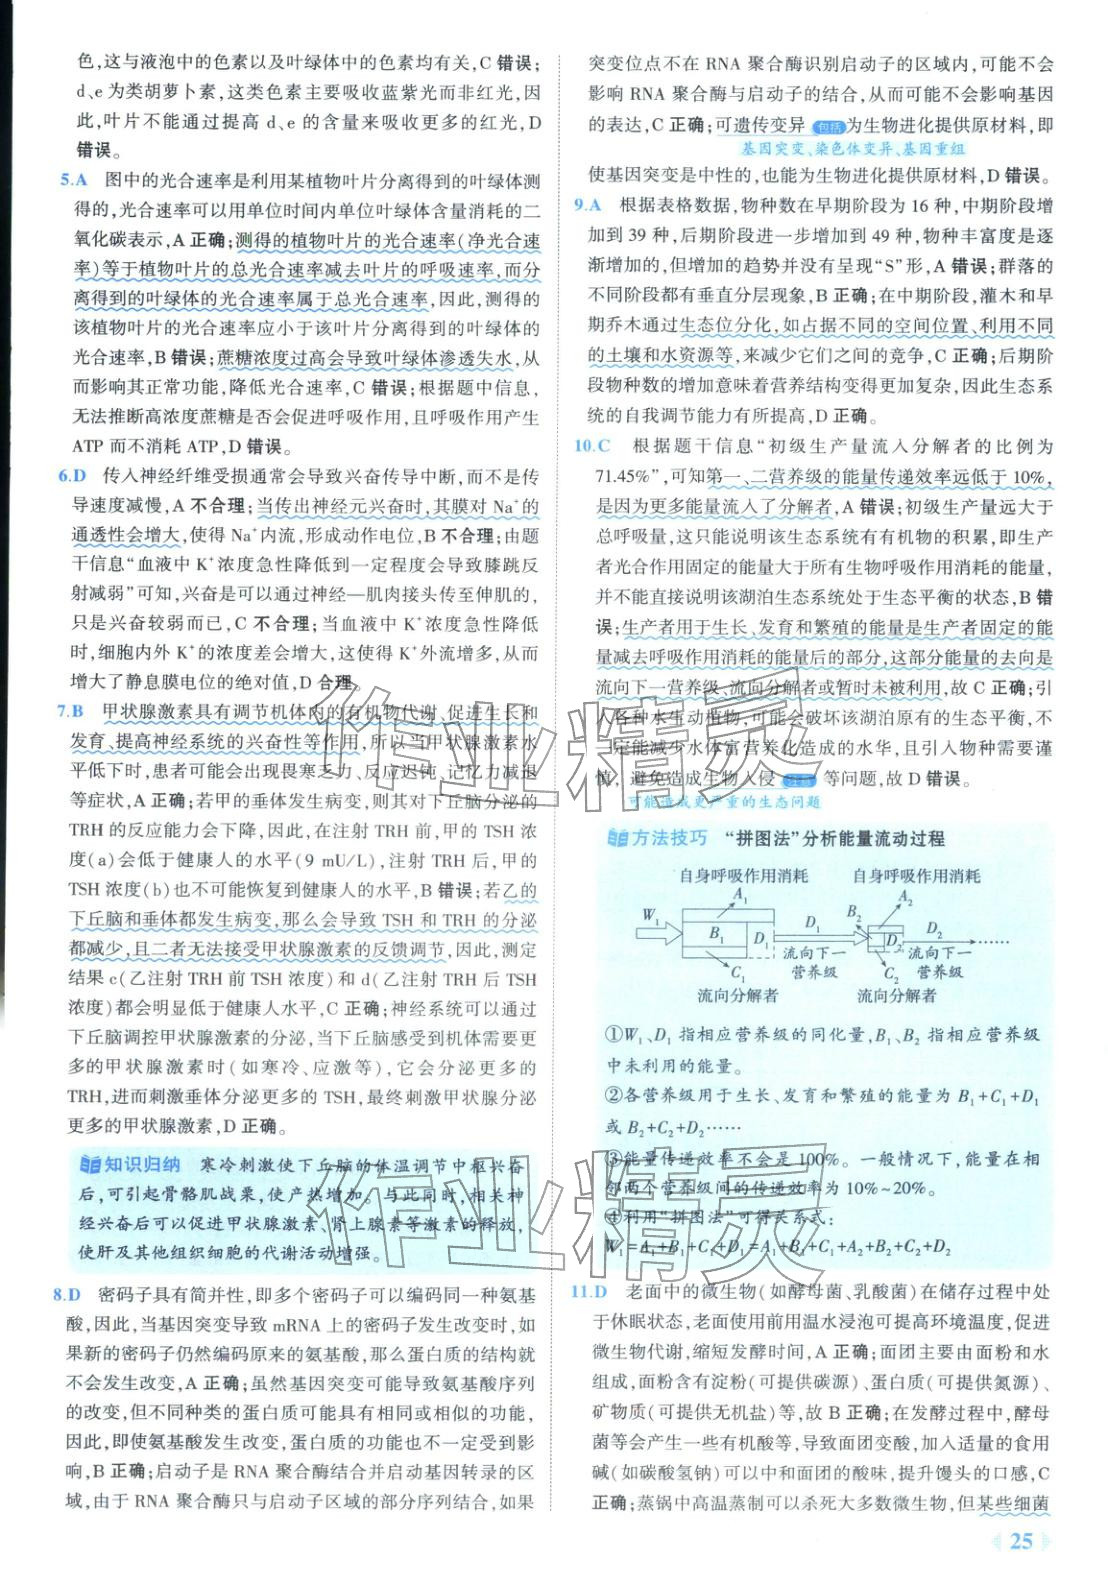 色,这与液泡中的色素以及叶绿体中的色素均有关,C 错误;
d、e 为类胡萝卜素,这类色素主要吸收蓝紫光而非红光,因
此,叶片不能通过提高 d、e 的含量来吸收更多的红光,D
错误。
5.A 图中的光合速率是利用某植物叶片分离得到的叶绿体测
得的,光合速率可以用单位时间内单位叶绿体含量消耗的二
氧化碳表示,A 正确;测得的植物叶片的光合速率(净光合速
率)等于植物叶片的总光合速率减去叶片的呼吸速率,而分
离得到的叶绿体的光合速率属于总光合速率,因此,测得的
该植物叶片的光合速率应小于该叶片分离得到的叶绿体的
光合速率,B 错误;蔗糖浓度过高会导致叶绿体渗透失水,从
而影响其正常功能,降低光合速率,C 错误;根据题中信息,
无法推断高浓度蔗糖是否会促进呼吸作用,且呼吸作用产生
ATP 而不消耗 ATP,D 错误。
6.D 传入神经纤维受损通常会导致兴奋传导中断,而不是传
导速度减慢,A 不合理;当传出神经元兴奋时,其膜对 Na⁺的
通透性会增大,使得 Na⁺内流,形成动作电位,B 不合理;由题
干信息“血液中 K⁺浓度急性降低到一定程度会导致膝跳反
射减弱”可知,兴奋是可以通过神经—肌肉接头传至伸肌的,
只是兴奋较弱而已,C 不合理;当血液中 K⁺浓度急性降低
时,细胞内外 K⁺的浓度差会增大,这使得 K⁺外流增多,从而
增大了静息膜电位的绝对值,D 合理。
7.B 甲状腺激素具有调节机体内的有机物代谢、促进生长和
发育、提高神经系统的兴奋性等作用,所以当甲状腺激素水
平低下时,患者可能会出现畏寒乏力、反应迟钝、记忆力减退
等症状,A 正确;若甲的垂体发生病变,则其对下丘脑分泌的
TRH 的反应能力会下降,因此,在注射 TRH 前,甲的 TSH 浓
度(a)会低于健康人的水平(9 mU/L),注射 TRH 后,甲的
TSH 浓度(b)也不可能恢复到健康人的水平,B 错误;若乙的
下丘脑和垂体都发生病变,那么会导致 TSH 和 TRH 的分泌
都减少,且二者无法接受甲状腺激素的反馈调节,因此,测定
结果 c(乙注射 TRH 前 TSH 浓度)和 d(乙注射 TRH 后 TSH
浓度)都会明显低于健康人水平,C 正确;神经系统可以通过
下丘脑调控甲状腺激素的分泌,当下丘脑感受到机体需要更
多的甲状腺激素时(如寒冷、应激等),它会分泌更多的
TRH,进而刺激垂体分泌更多的 TSH,最终刺激甲状腺分泌
更多的甲状腺激素,D 正确。
知识归纳 寒冷刺激使下丘脑的体温调节中枢兴奋
后,可引起骨骼肌战栗,使产热增加。与此同时,相关神
经兴奋后可以促进甲状腺激素、肾上腺素等激素的释放,
使肝及其他组织细胞的代谢活动增强。
8.D 密码子具有简并性,即多个密码子可以编码同一种氨基
酸,因此,当基因突变导致 mRNA 上的密码子发生改变时,如
果新的密码子仍然编码原来的氨基酸,那么蛋白质的结构就
不会发生改变,A 正确;虽然基因突变可能导致氨基酸序列
的改变,但不同种类的蛋白质可能具有相同或相似的功能,
因此,即使氨基酸发生改变,蛋白质的功能也不一定受到影
响,B 正确;启动子是 RNA 聚合酶结合并启动基因转录的区
域,由于 RNA 聚合酶只与启动子区域的部分序列结合,如果
突变位点不在 RNA 聚合酶识别启动子的区域内,可能不会
影响 RNA 聚合酶与启动子的结合,从而可能不会影响基因
的表达,C 正确;可遗传变异 包括 为生物进化提供原材料,即
基因突变、染色体变异、基因重组
使基因突变是中性的,也能为生物进化提供原材料,D 错误。
9.A 根据表格数据,物种数在早期阶段为 16 种,中期阶段增
加到 39 种,后期阶段进一步增加到 49 种,物种丰富度是逐
渐增加的,但增加的趋势并没有呈现“S”形,A 错误;群落的
不同阶段都有垂直分层现象,B 正确;在中期阶段,灌木和早
期乔木通过生态位分化,如占据不同的空间位置、利用不同
的土壤和水资源等,来减少它们之间的竞争,C 正确;后期阶
段物种数的增加意味着营养结构变得更加复杂,因此生态系
统的自我调节能力有所提高,D 正确。
10.C 根据题干信息“初级生产量流入分解者的比例为
71.45%”,可知第一、二营养级的能量传递效率远低于 10%,
是因为更多能量流入了分解者,A 错误;初级生产量远大于
总呼吸量,这只能说明该生态系统有有机物的积累,即生产
者光合作用固定的能量大于所有生物呼吸作用消耗的能量,
并不能直接说明该湖泊生态系统处于生态平衡的状态,B 错
误;生产者用于生长、发育和繁殖的能量是生产者固定的能
量减去呼吸作用消耗的能量后的部分,这部分能量的去向是
流向下一营养级、流向分解者或暂时未被利用,故 C 正确;引
入各种水生动植物,可能会破坏该湖泊原有的生态平衡,不
一定能减少水体富营养化造成的水华,且引入物种需要谨
慎,避免造成生物入侵 等问题,故 D 错误。
可能造成更严重的生态问题
方法技巧 “拼图法”分析能量流动过程
自身呼吸作用消耗 自身呼吸作用消耗
W₁ A₁ B₁ D₁ C₁ D₁ B₂ A₂ D₂ C₂ ……
流向下一营养级 流向下一营养级
流向分解者 流向分解者
①W₁、D₁ 指相应营养级的同化量,B₁、B₂ 指相应营养级
中未利用的能量。
②各营养级用于生长、发育和繁殖的能量为 B₁+C₁+D₁
或 B₂+C₂+D₂……
③能量传递效率不会是 100%。一般情况下,能量在相
邻两个营养级间的传递效率为 10%~20%。
④利用“拼图法”可得关系式:
W₁=A₁+B₁+C₁+D₁=A₁+B₁+C₁+A₂+B₂+C₂+D₂
11.D 老面中的微生物(如酵母菌、乳酸菌)在储存过程中处
于休眠状态,老面使用前用温水浸泡可提高环境温度,促进
微生物代谢,缩短发酵时间,A 正确;面团主要由面粉和水
组成,面粉含有淀粉(可提供碳源)、蛋白质(可提供氮源)、
矿物质(可提供无机盐)等,故 B 正确;在发酵过程中,酵母
菌等会产生一些有机酸等,导致面团变酸,加入适量的食用
碱(如碳酸氢钠)可以中和面团的酸味,提升馒头的口感,C
正确;蒸锅中高温蒸制可以杀死大多数微生物,但某些细菌
作业精灵
作业精灵
25